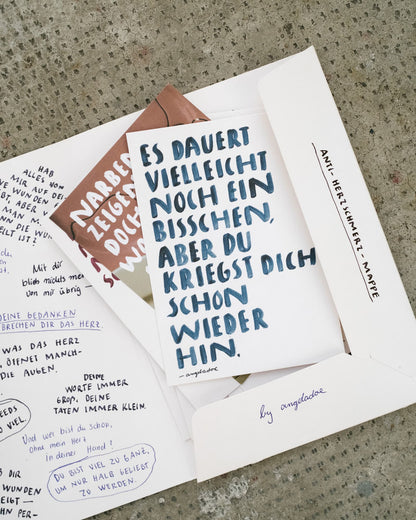 HAB
ALLES VOM
MIR AUF DEI
WUNDEN
ABER
MAN M
NN DIE WUN
ELT IST?
Mit dir
blieb nichts me
Von mir übrig
DEINE GEDANKEN
BRECHEN DIR DAS HERZ.
WAS DAS HERZ
ÖFFNET MANCH-
DIE AUGEN.
DEINE
WORTE IMMER
GROß, DEINE
TATEN IMMER KLEIN.
EEDS
VIEL
Und wer bist du schon,
ohne mein Herz
in deiner Hand?
DU BIST VIEL ZU GANZ,
UM NUR HALB GELIEBT
ZU WERDEN.
DIR
WUNDEN
EIGT –
HN PER-
NARBEN
ZEIGEN
DOCH
WO
ES DAUERT
VIELLEICHT
NOCH EIN
BISSCHEN,
ABER DU
KRIEGST DICH
SCHON
WIEDER
HIN.
– angeladoe
ANTI-HERZSCHMERZ-MAPPE
by angeladoe